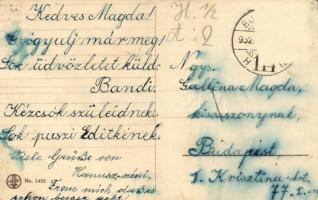 Kedves Magda!
Gyógyulj már meg,
Sok üdvözletet küld:
Bandi.
Kézcsók szüleidnek.
Sok puszi Editkének.
Viele Grüße von
Hanusz-néni.
Freue mich daß es
schon besser geht!
No. 1450
H. 1/2
Ngs.
Gallina Magda,
kisasszonynak,
Budapest,
1. Krisztina-krt.
77. I.